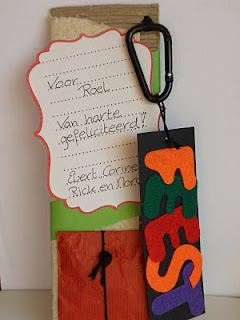 Voor
Roel
Van harte
gefeliciteerd!
Evert, Corine
Rick en
FEEST